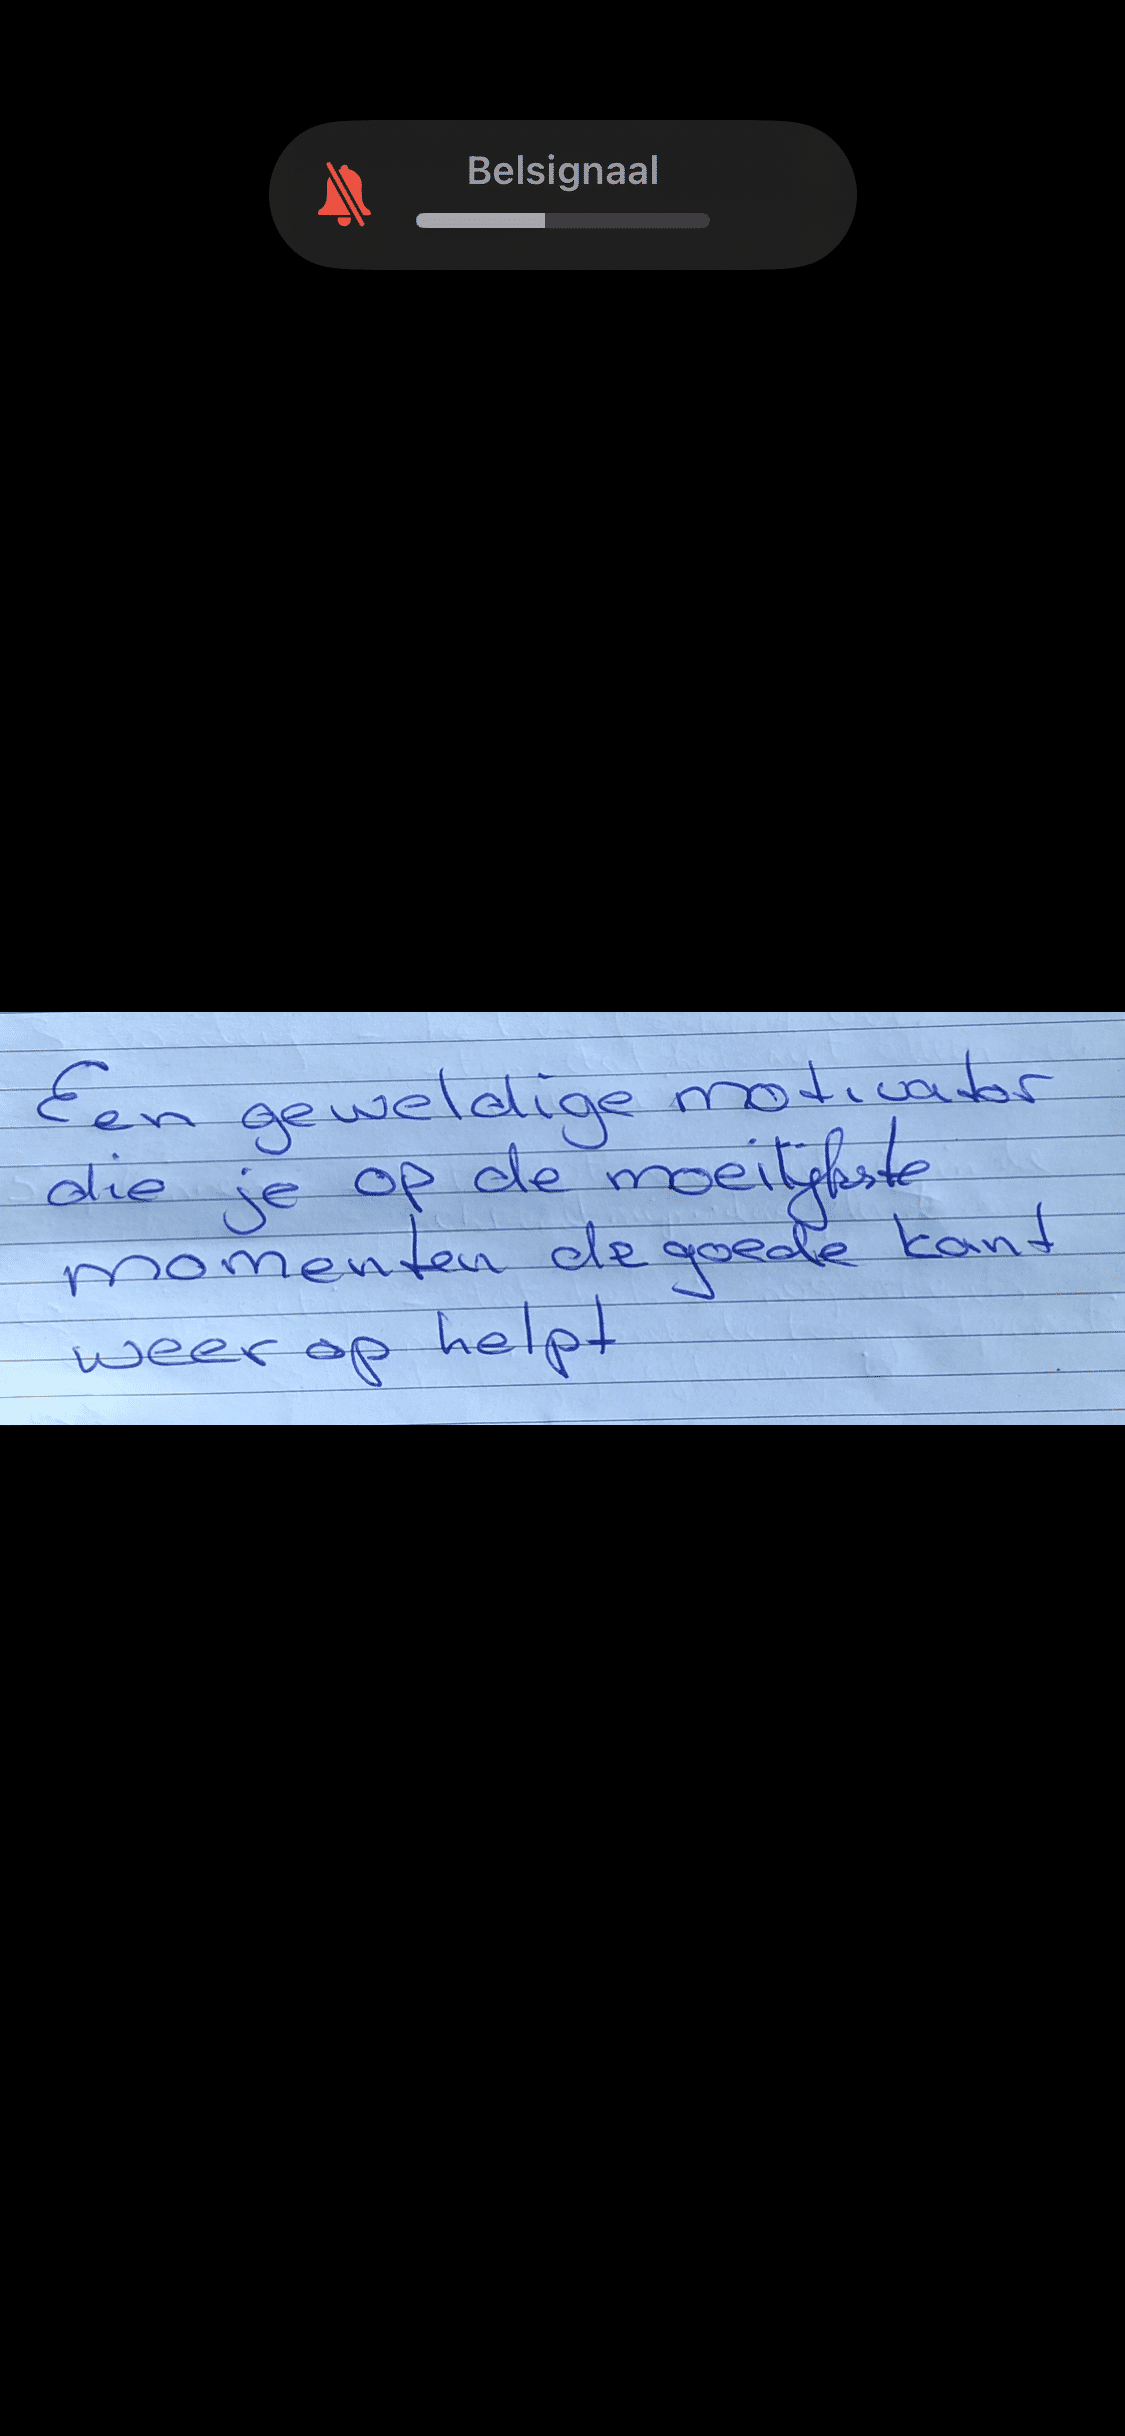 Belsignaal
Een geweldige motivator
die je op de moeilijkste
momenten de goede kant
weer op helpt